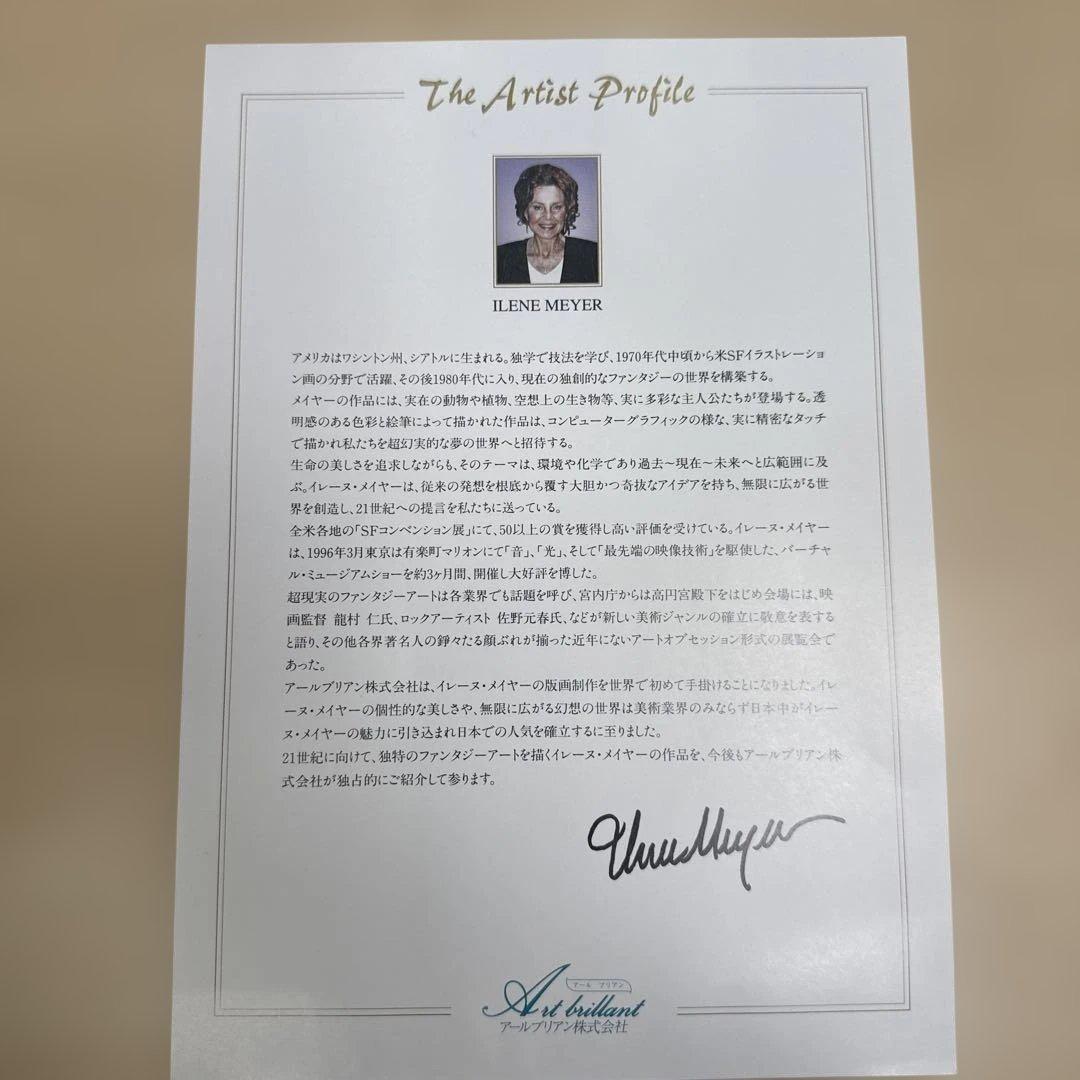 The Artist Profile
ILENE MEYER
アメリカはワシントン州、シアトルに生まれる。独学で技法を学び、1970年代中頃から米SFイラストレーショ
ン画の分野で活躍、その後1980年代に入り、現在の独創的なファンタジーの世界を構築する。
メイヤーの作品には、実在の動物や植物、空想上の生き物等、実に多彩な主人公たちが登場する。透
明感のある色彩と絵筆によって描かれた作品は、コンピューターグラフィックの様な、実に精密なタッチ
で描かれ私たちを超幻実的な夢の世界へと招待する。
生命の美しさを追求しながらも、そのテーマは、環境や化学であり過去～現在～未来へと広範囲に及
ぶ。イレーヌ・メイヤーは、従来の発想を根底から覆す大胆かつ奇抜なアイデアを持ち、無限に広がる世
界を創造し、21世紀への提言を私たちに送っている。
全米各地の「SFコンベンション展」にて、50以上の賞を獲得し高い評価を受けている。イレーヌ・メイヤー
は、1996年3月東京は有楽町マリオンにて「音」、「光」、そして「最先端の映像技術」を駆使した、バーチャ
ル・ミュージアムショーを約3ヶ月間、開催し大好評を博した。
超現実のファンタジーアートは各業界でも話題を呼び、宮内庁からは高円宮殿下をはじめ会場には、映
画監督 龍村 仁氏、ロックアーティスト 佐野元春氏、などが新しい美術ジャンルの確立に敬意を表する
と語り、その他各界著名人の錚々たる顔ぶれが揃った近年にないアートオブセッション形式の展覧会で
あった。
アールブリアン株式会社は、イレーヌ・メイヤーの版画制作を世界で初めて手掛けることになりました。イレ
ーヌ・メイヤーの個性的な美しさや、無限に広がる幻想の世界は美術業界のみならず日本中がイレー
ヌ・メイヤーの魅力に引き込まれ日本での人気を確立するに至りました。
21世紀に向けて、独特のファンタジーアートを描くイレーヌ・メイヤーの作品を、今後もアールブリアン株
式会社が独占的にご紹介して参ります。
Ilene Meyer
アール ブリアン
Art brillant
アールブリアン株式会社